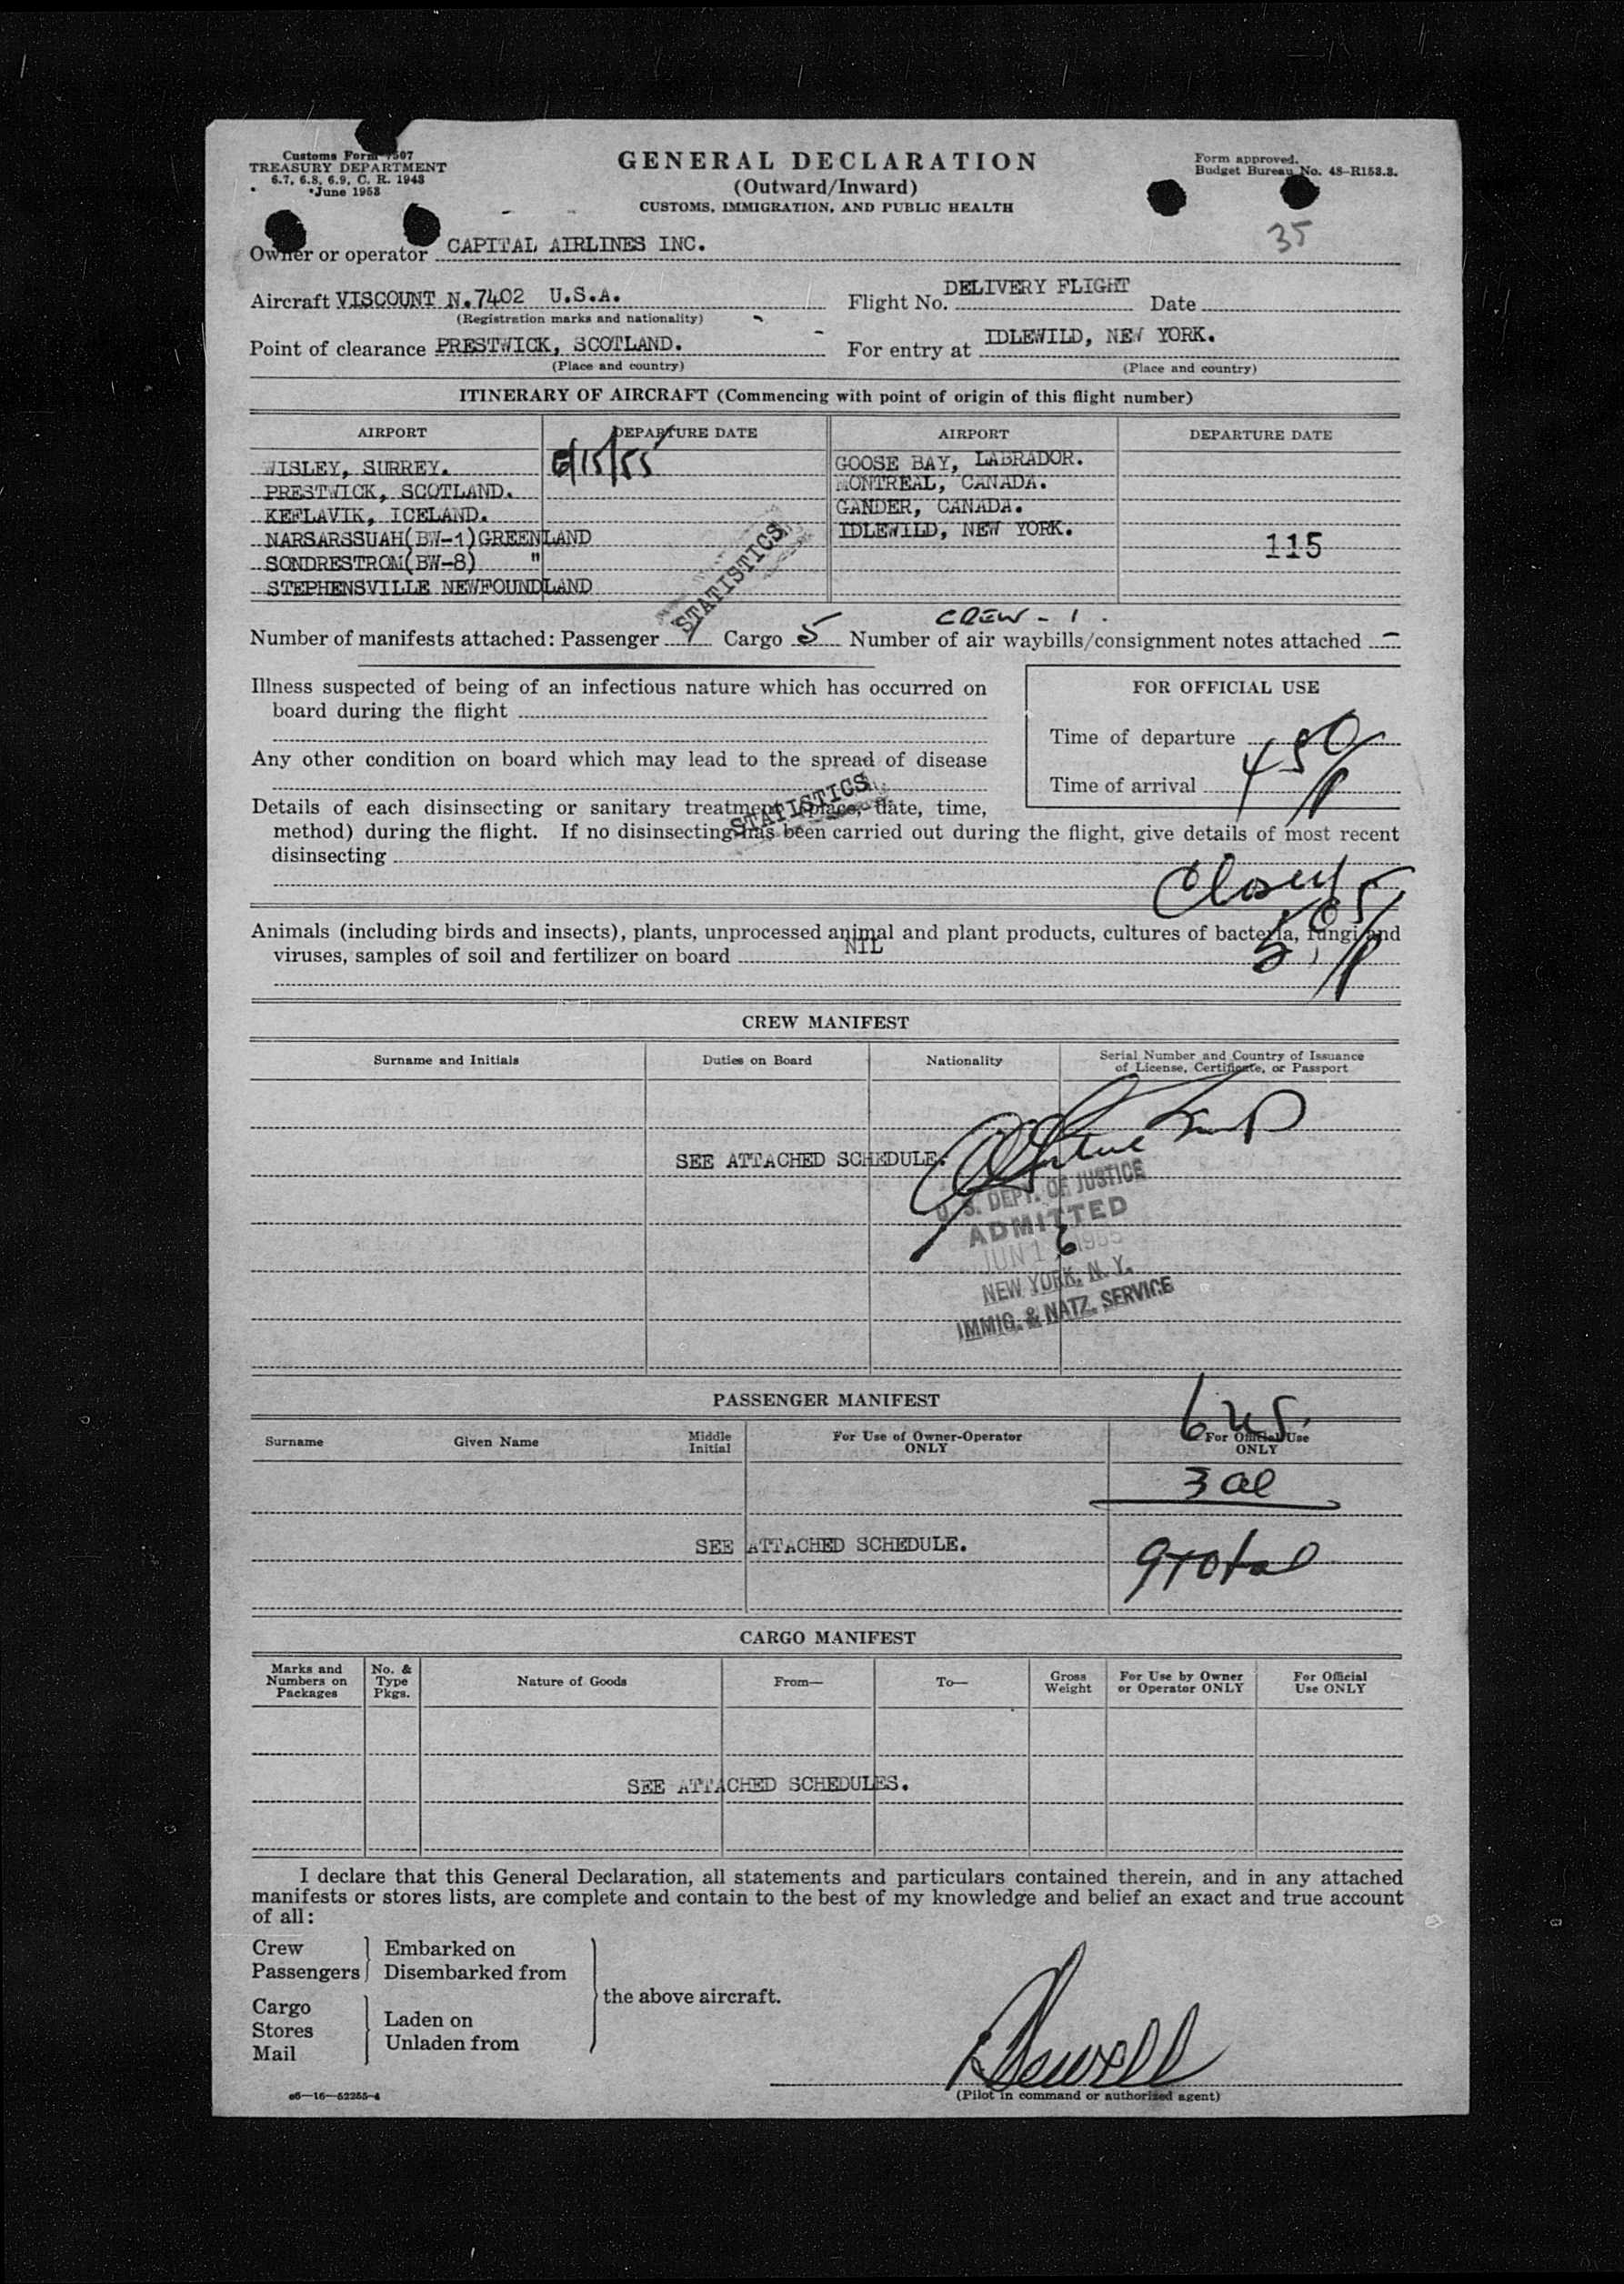 Customs Form 7507
TREASURY DEPARTMENT
6.7, 6.8, 6.9, C. R. 1943
June 1953
GENERAL DECLARATION
(Outward/Inward)
CUSTOMS, IMMIGRATION, AND PUBLIC HEALTH
Form approved.
Budget Bureau No. 48-R153.3.
35
Owner or operator CAPITAL AIRLINES INC.
Aircraft VISCOUNT N.7402 U.S.A. Flight No. DELIVERY FLIGHT Date
(Registration marks and nationality)
Point of clearance PRESTWICK, SCOTLAND. For entry at IDLEWILD, NEW YORK.
(Place and country) (Place and country)
ITINERARY OF AIRCRAFT (Commencing with point of origin of this flight number)
AIRPORT DEPARTURE DATE AIRPORT DEPARTURE DATE
WISLEY, SURREY. 6/15/55 GOOSE BAY, LABRADOR.
PRESTWICK, SCOTLAND. MONTREAL, CANADA.
KEFLAVIK, ICELAND. GANDER, CANADA.
NARSARSSUAH(BW-1)GREENLAND IDLEWILD, NEW YORK. 115
SONDRESTROM(BW-8) "
STEPHENSVILLE NEWFOUNDLAND
STATISTICS
CREW - 1.
Number of manifests attached: Passenger 1 Cargo 5 Number of air waybills/consignment notes attached -
Illness suspected of being of an infectious nature which has occurred on
board during the flight
Any other condition on board which may lead to the spread of disease
FOR OFFICIAL USE
Time of departure
Time of arrival 450/P
STATISTICS
Details of each disinsecting or sanitary treatment (place, date, time,
method) during the flight. If no disinsecting has been carried out during the flight, give details of most recent
disinsecting
Closed
5:05/P
Animals (including birds and insects), plants, unprocessed animal and plant products, cultures of bacteria, fungi and
viruses, samples of soil and fertilizer on board NIL
CREW MANIFEST
Surname and Initials Duties on Board Nationality Serial Number and Country of Issuance
of License, Certificate, or Passport
SEE ATTACHED SCHEDULE.
U. S. DEPT. OF JUSTICE
ADMITTED
JUN 16 1955
NEW YORK, N. Y.
IMMIG. & NATZ. SERVICE
PASSENGER MANIFEST
6 US.
Surname Given Name Middle
Initial For Use of Owner-Operator
ONLY For Official Use
ONLY
3 al
SEE ATTACHED SCHEDULE.
9 Total
CARGO MANIFEST
Marks and
Numbers on
Packages No. &
Type
Pkgs. Nature of Goods From— To— Gross
Weight For Use by Owner
or Operator ONLY For Official
Use ONLY
SEE ATTACHED SCHEDULES.
I declare that this General Declaration, all statements and particulars contained therein, and in any attached
manifests or stores lists, are complete and contain to the best of my knowledge and belief an exact and true account
of all:
Crew
Passengers
Embarked on
Disembarked from
Cargo
Stores
Mail
Laden on
Unladen from
the above aircraft.
(Pilot in command or authorized agent)
c6—16—52255-4